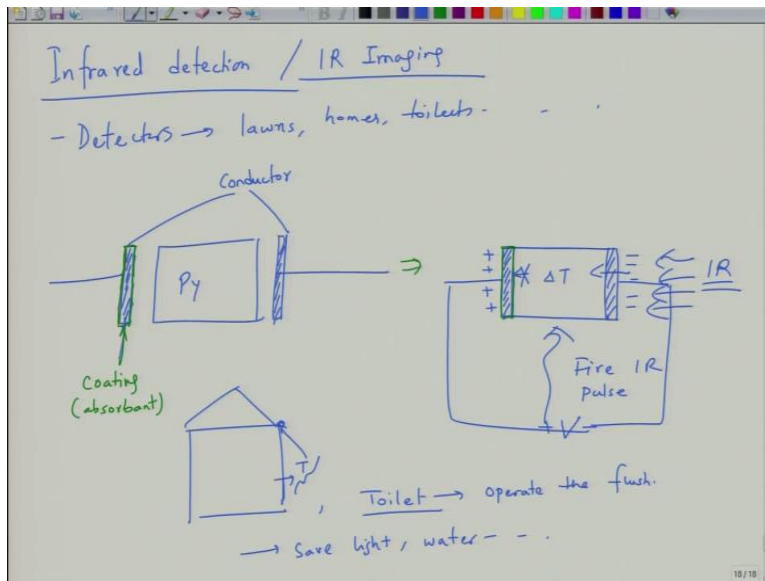 Infrared detection / IR Imaging
- Detectors → lawns, homes, toilects - - .
Conductor
Py
Coating
(absorbant)
⇒
+
+
+
+
ΔT
IR
Fire IR
pulse
+ V -
T
, Toilet → operate the flush.
→ Save light, water - - .
18/18